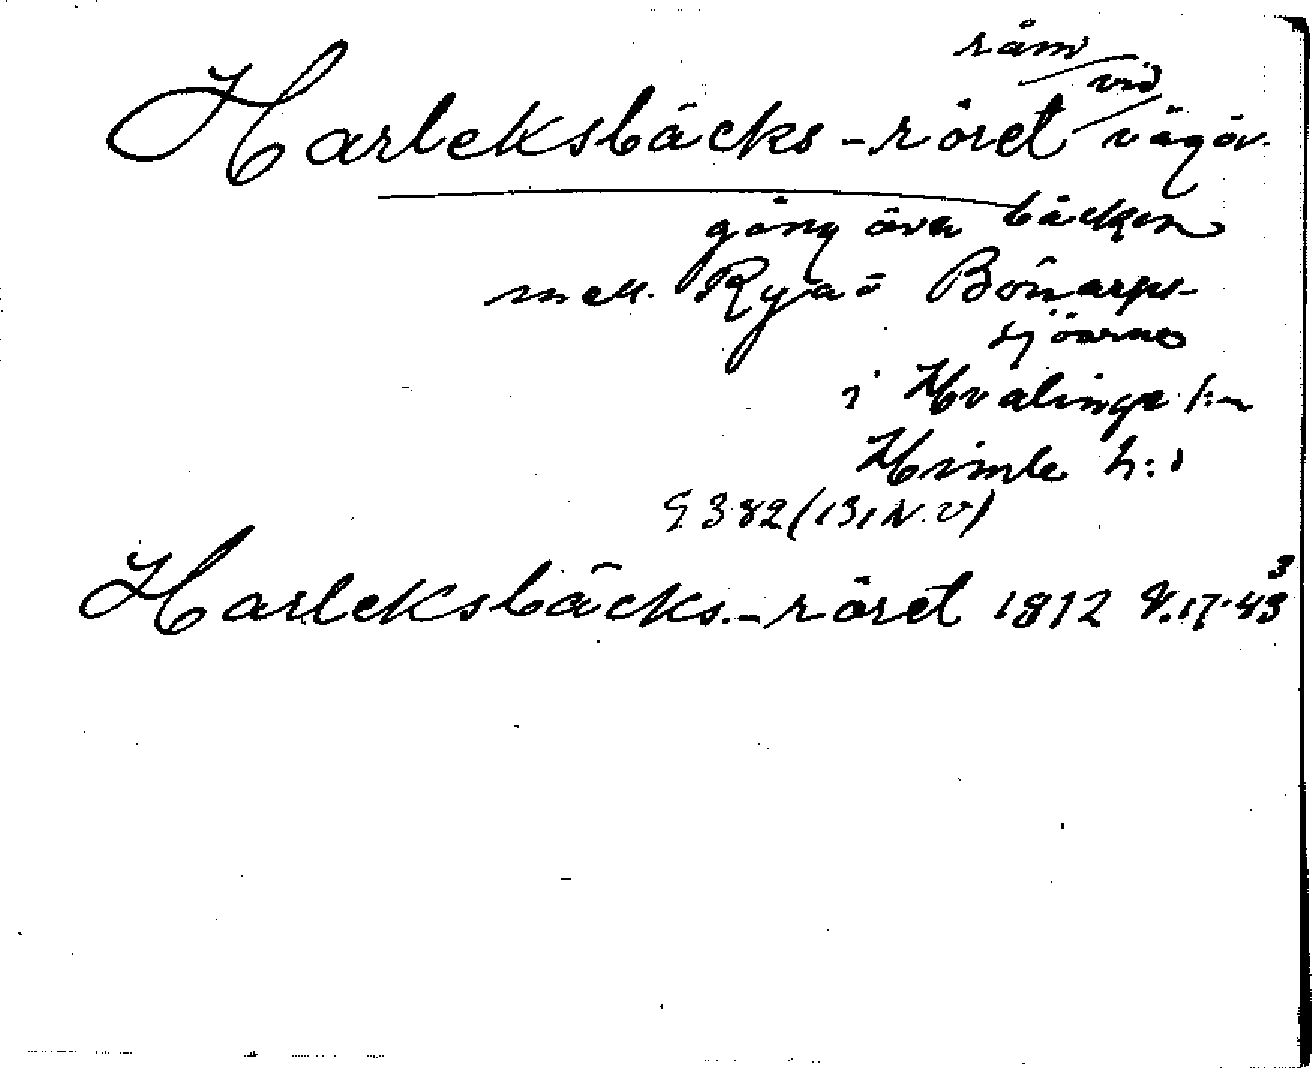 råm
vid
Harleksbäcks-röret vägöv-
gång över bäcken
mell. Rya- o Bönarps-
sjöarna
i Hvalinge s:n
Himle h:d
G 382 (131 N.V)
Harleksbäcks-röret 1812 V.17-43 3